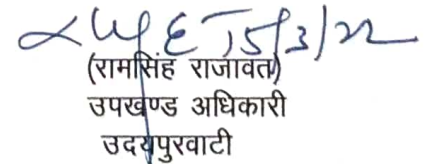 15/3/22
(रामसिंह राजावत)
उपखण्ड अधिकारी
उदयपुरवाटी